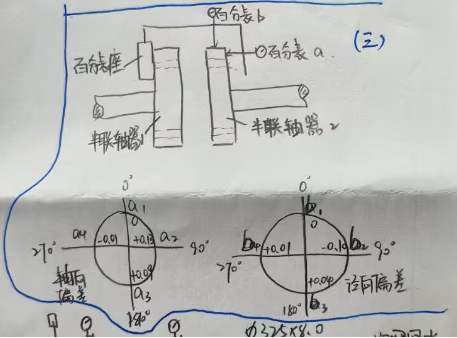 百分表b
(三)
百分表a
百分表座
半联轴器1
半联轴器2
0°
a1
0
a4
-0.01
+0.13
a2
270°
90°
轴向
偏差
+0.09
a3
180°
0°
b1
0
b4
+0.01
-0.10
b2
270°
90°
径向偏差
+0.04
180°
b3
ϕ325×8.0